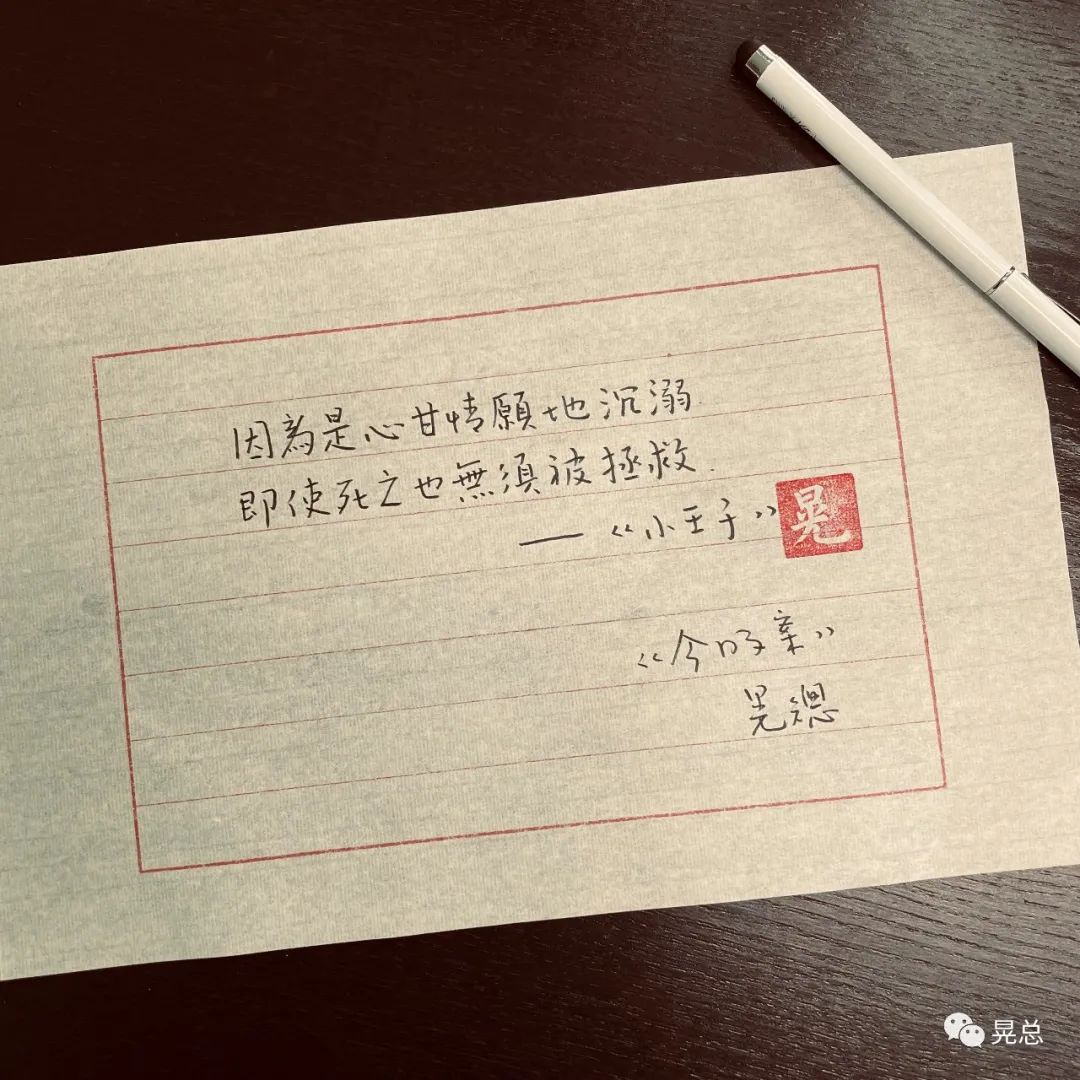 因為是心甘情願地沉溺.
即使死亡也無須被拯救.
—— 《小王子》
晃
《今日ृ案》
晃總
晃总